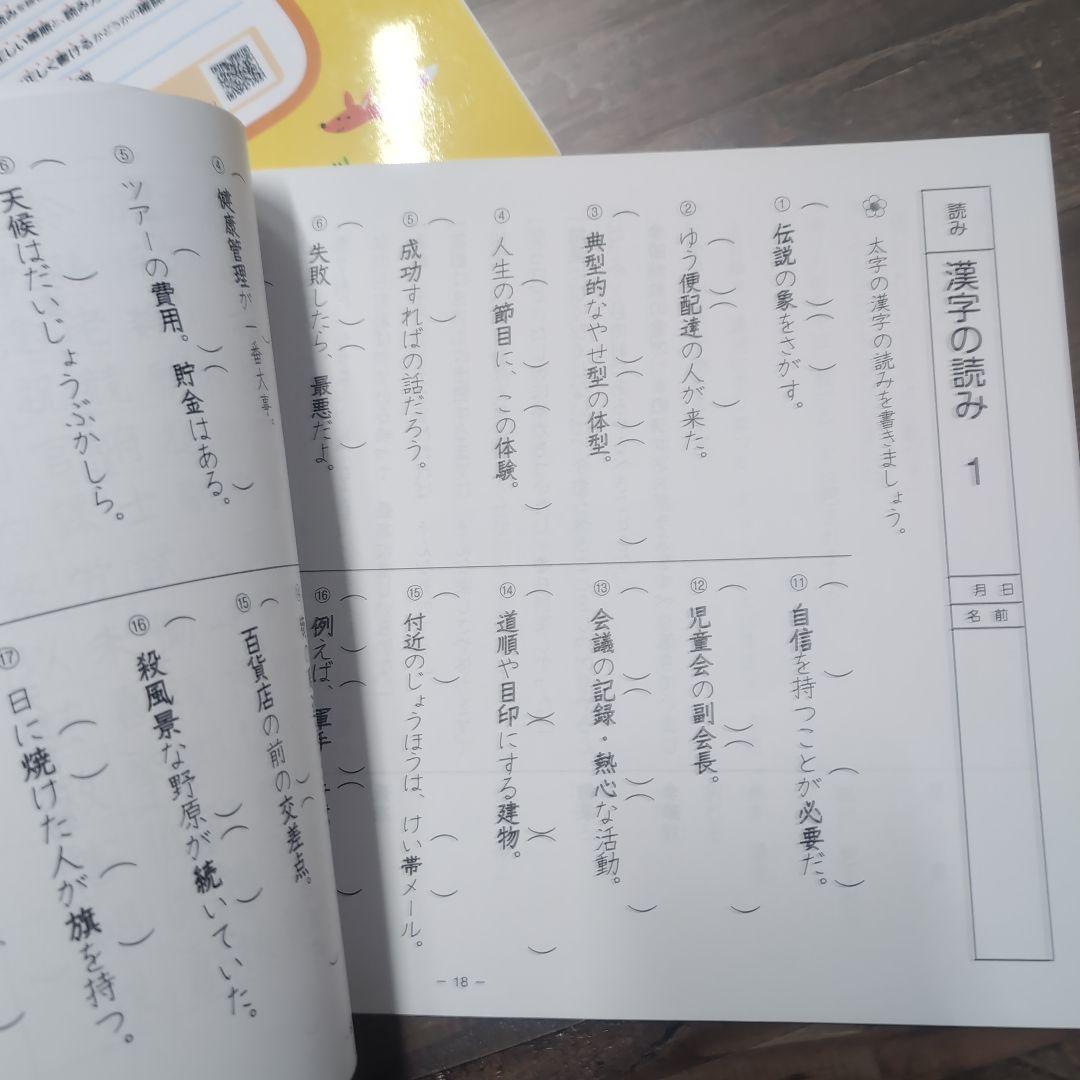 読み
漢字の読み 1
月 日
名 前
太字の漢字の読みを書きましょう。
① 伝説の象をさがす。
② ゆう便配達の人が来た。
③ 典型的なやせ型の体型。
④ 人生の節目に、この体験。
⑤ 成功すればの話だろう。
⑥ 失敗したら、最悪だよ。
⑪ 自信を持つことが必要だ。
⑫ 児童会の副会長。
⑬ 会議の記録・熱心な活動。
⑭ 道順や目印にする建物。
⑮ 付近のじょうほうは、けい帯メール。
⑯ 例えば、軍手
― 18 ―
④ 健康管理が一番大事。
⑤ ツアーの費用。貯金はある。
⑥ 天候はだいじょうぶかしら。
⑮ 百貨店の前の交差点。
⑯ 殺風景な野原が続いていた。
⑰ 日に焼けた人が旗を持つ。